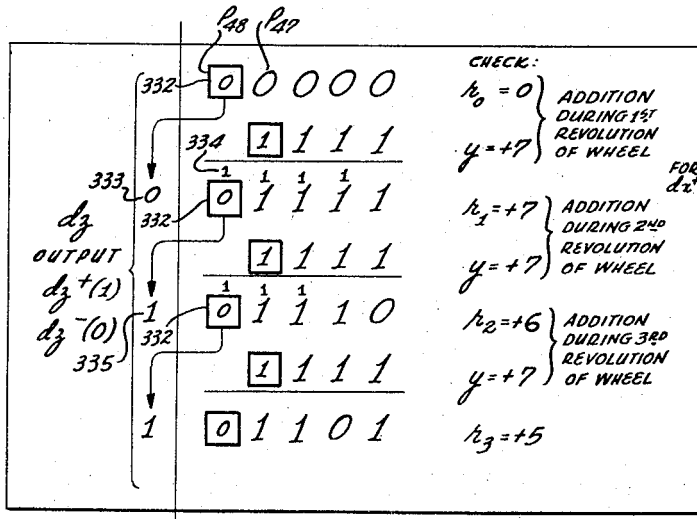 P48 P47
332 0 0 0 0 0
1 1 1 1
334
1 1 1 1
333 0 332 0 1 1 1 1
1 1 1 1
1 1 1
335 1 332 0 1 1 1 0
1 1 1 1
1 0 1 1 0 1
dz
OUTPUT
dz+(1)
dz-(0)
CHECK:
r0 = 0
y = +7
ADDITION
DURING 1ST
REVOLUTION
OF WHEEL
FOR
dx+
r1 = +7
y = +7
ADDITION
DURING 2ND
REVOLUTION
OF WHEEL
r2 = +6
y = +7
ADDITION
DURING 3RD
REVOLUTION
OF WHEEL
r3 = +5